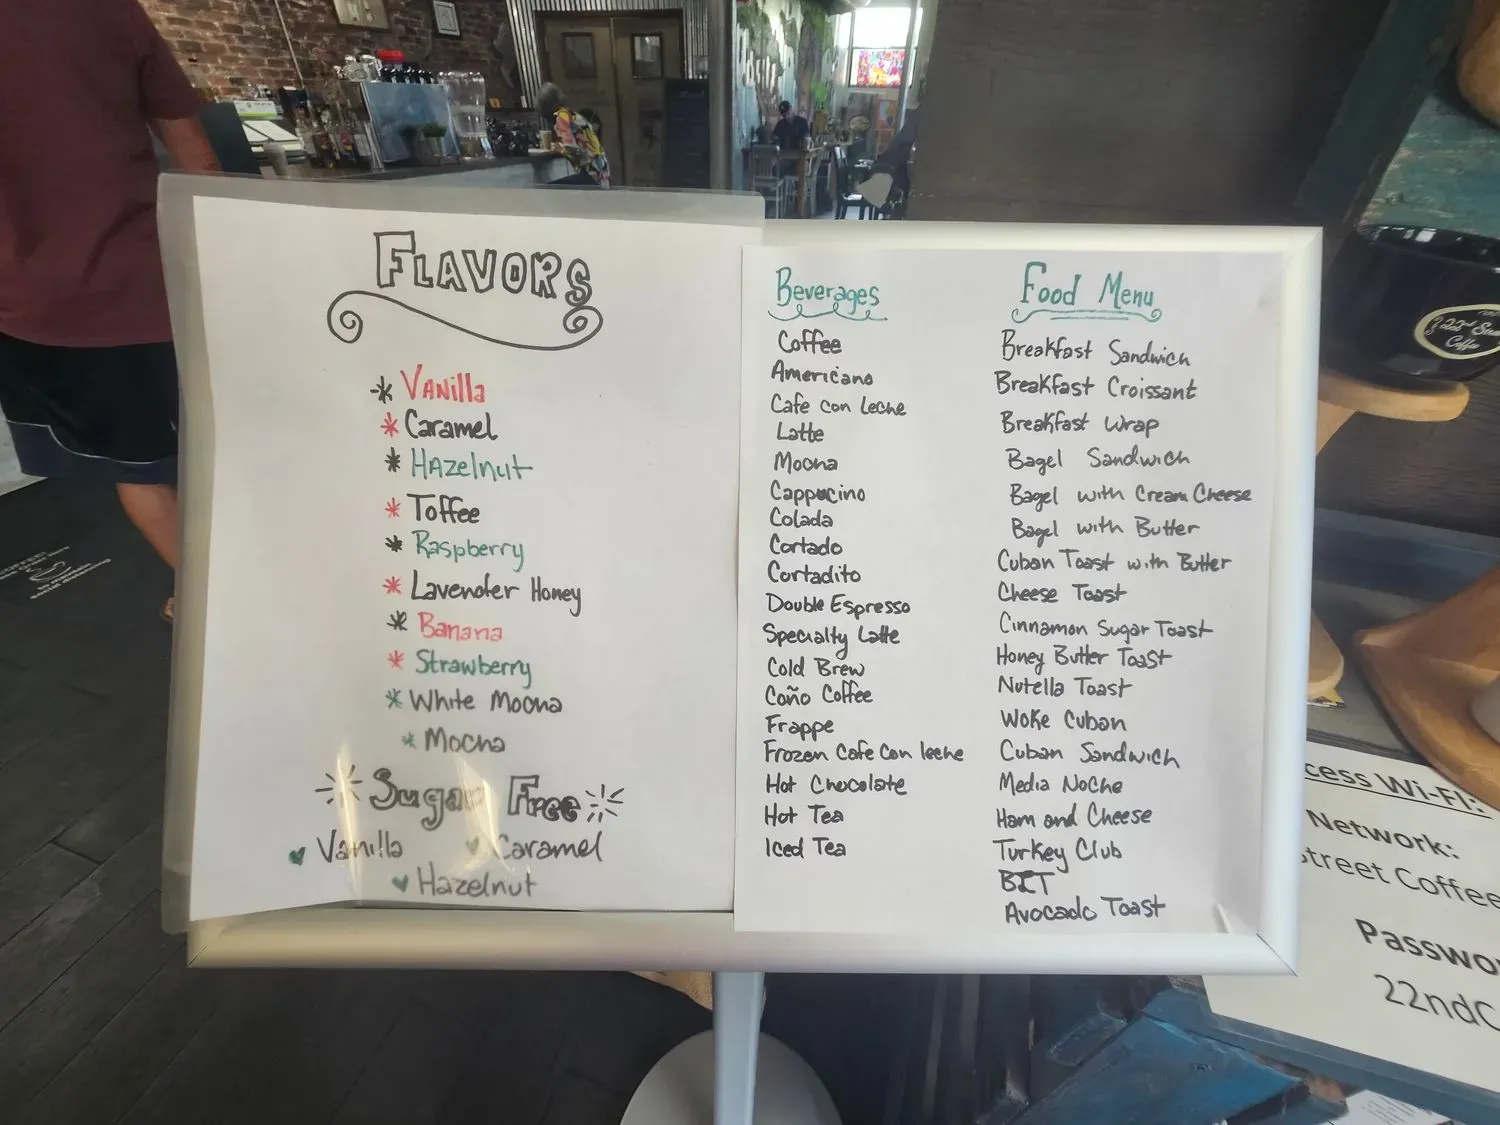 FLAVORS
* Vanilla
* Caramel
* Hazelnut
* Toffee
* Raspberry
* Lavender Honey
* Banana
* Strawberry
* White Mocha
* Mocha
Sugar Free
Vanilla
Caramel
Hazelnut
Beverages
Coffee
Americano
Cafe con Leche
Latte
Mocha
Cappucino
Colada
Cortado
Cortadito
Double Espresso
Specialty Latte
Cold Brew
Coño Coffee
Frappe
Frozen Cafe Con leche
Hot Chocolate
Hot Tea
Iced Tea
Food Menu
Breakfast Sandwich
Breakfast Croissant
Breakfast Wrap
Bagel Sandwich
Bagel with Cream Cheese
Bagel with Butter
Cuban Toast with Butter
Cheese Toast
Cinnamon Sugar Toast
Honey Butter Toast
Nutella Toast
Woke Cuban
Cuban Sandwich
Media Noche
Ham and Cheese
Turkey Club
BLT
Avocado Toast
22nd
Coffee
cess Wi-FI:
Network:
Street Coffee
Passwo
22ndC